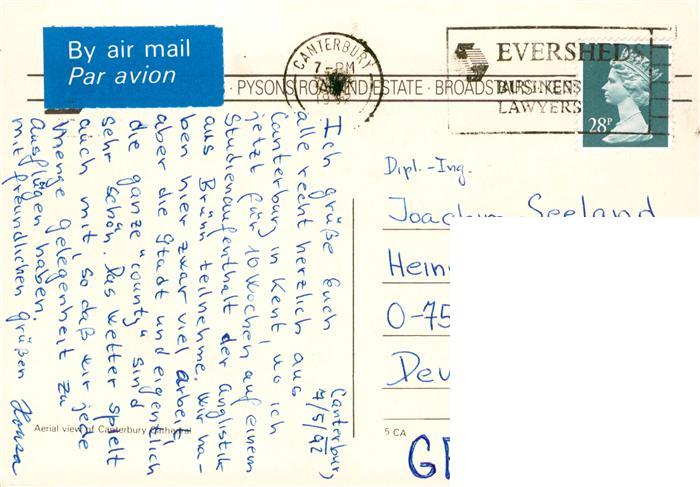 By air mail
Par avion
CANTERBURY
7-PM
EVERSHEDS
BUSINESS
LAWYERS
28P
· PYSONS ROAD IND ESTATE · BROADSTAIRS · KENT
Canterbury
7/5/92
Ich grüße Euch
alle recht herzlich aus
Canterbury in Kent, wo ich
jetzt für 10 Wochen auf einem
Studienaufenthalt der Anglistik
aus Brünn teilnehme. Wir ha-
ben hier zwar viel Arbeit,
aber die Stadt und eigentlich
die ganze "county" sind
sehr schön. Das Wetter spielt
auch mit, so daß wir jede
Menge Gelegenheit zu
Ausflügen haben.
Mit freundlichen Grüßen Honza
Dipl.-Ing.
Joachim Seeland
Aerial view of Canterbury Cathedral
5 CA